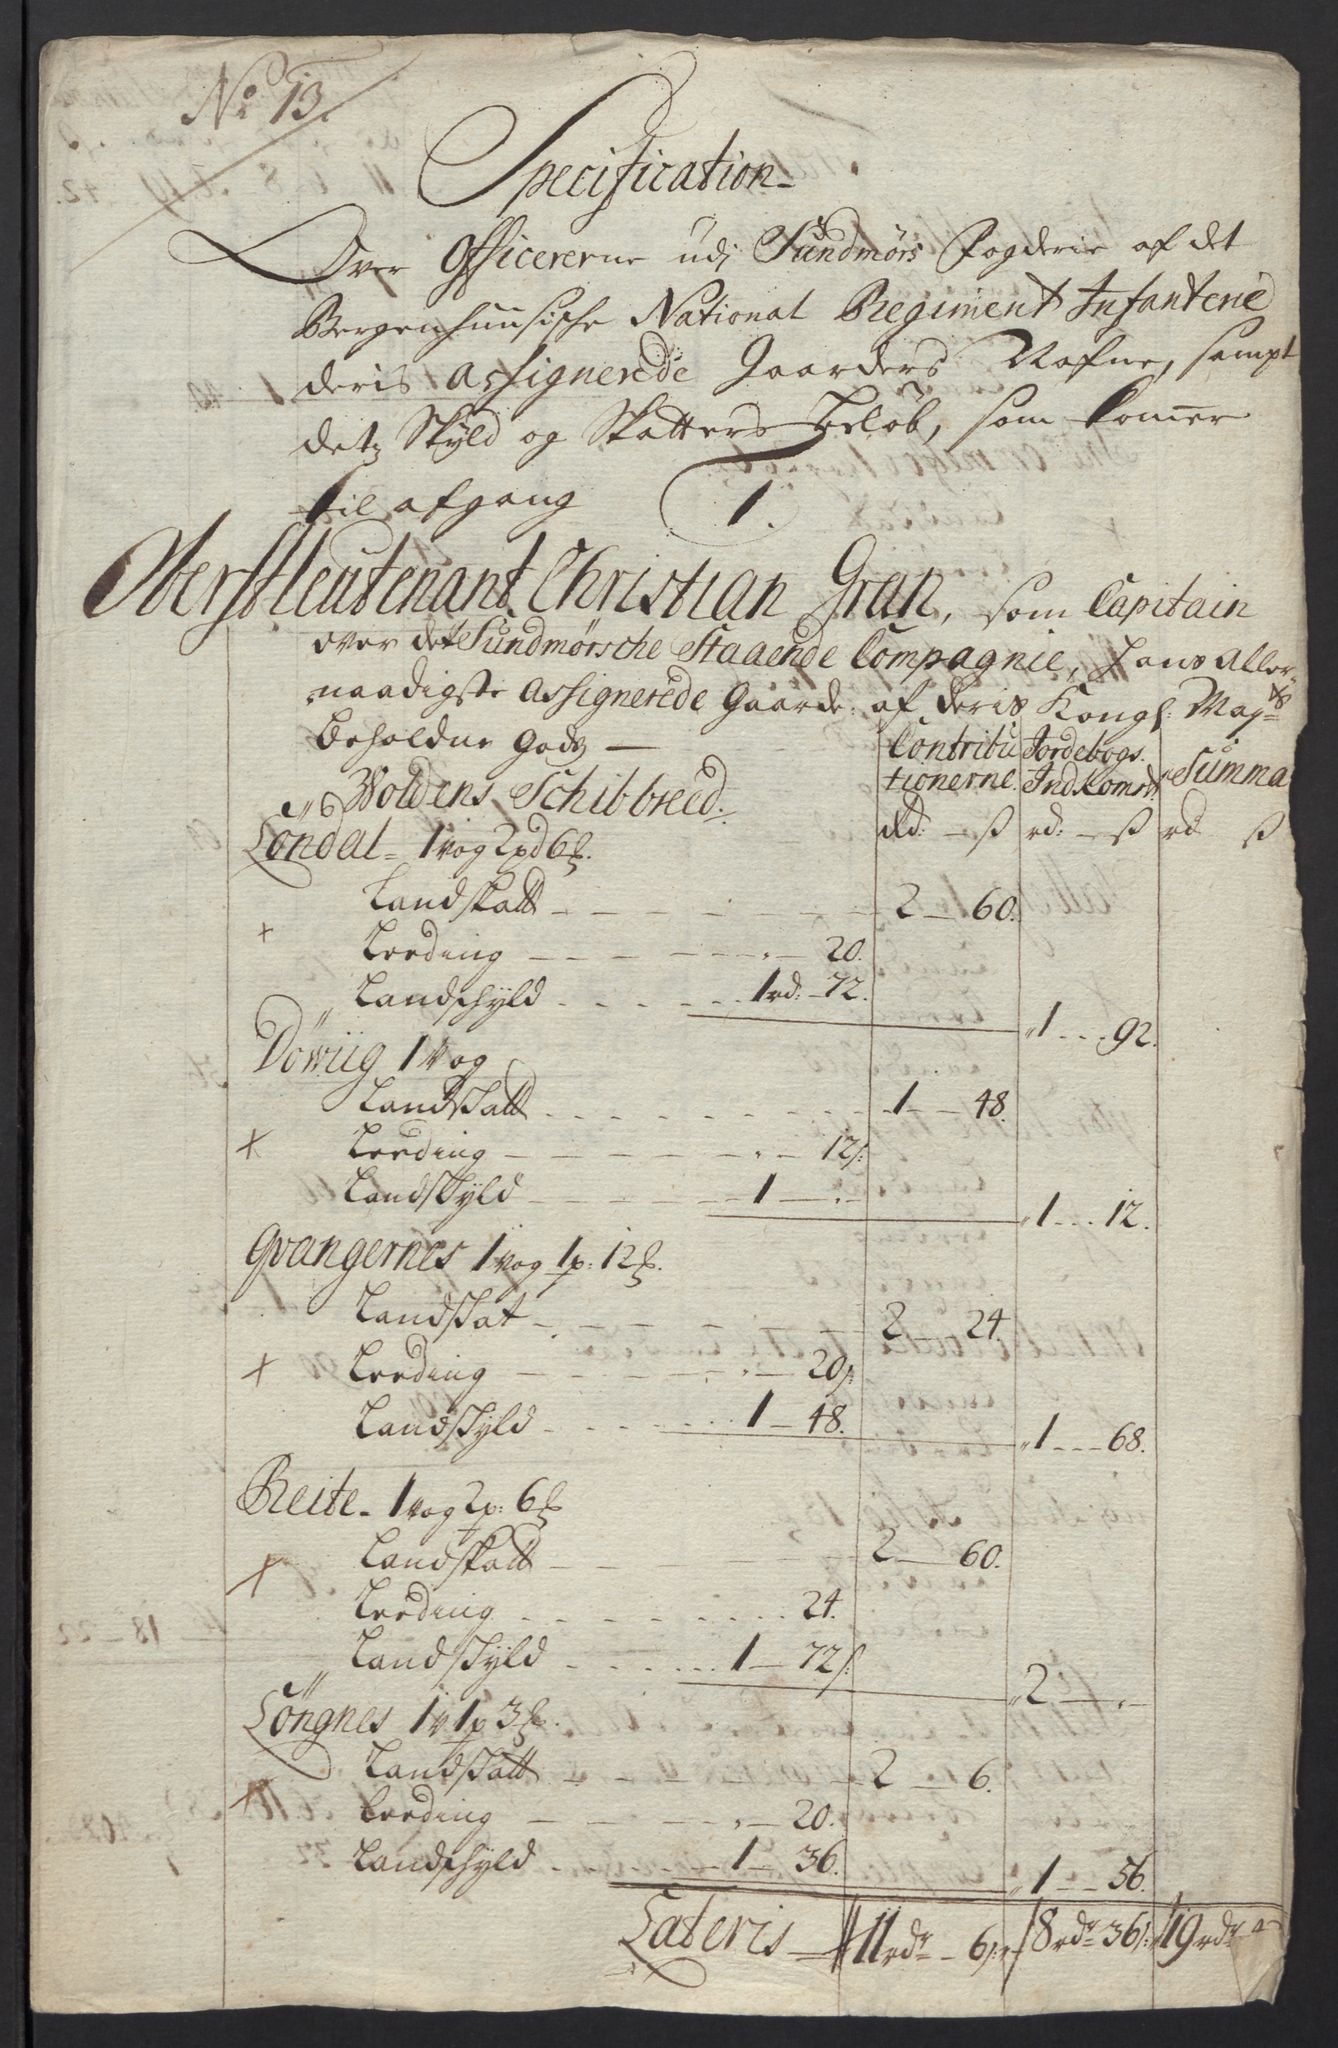 No 13.
Specification
Over Officererne udj Sundmørs Fogderie af det
Bergenhuusische National Regiment Infanterie
deris assignerede Gaarders Nafne, sampt
detz Skyld og Skatters Beløb, som komer
til afgang
1.
Oberstleutenant Christian Gran, som Capitain
over det Sundmørsche Staaende Compagnie, hans aller-
naadigste assignerede Gaarde af deris Kongl: Mayts
beholdne Godz —
Contributionerne. Jordebogs Indkomst. Summa
Woldens Schibbreed.
rd: — ß rd: — ß rd ß
Löndal - 1 vog 2 pd 6 ℔.
Landskatt 2 — 60.
+ Leeding " — 20.
Landschyld 1 rd: — 72.
1 - - 92.
Döwiig 1 vog
Landskatt 1 — 48.
+ Leeding " — 12ß:
Landskyld 1 — " —
1 - - 12.
Qvangernes 1 vog 1 p: 12 ℔.
Landskat 2 — 24.
+ Leeding " — 20ß:
Landskyld 1 — 48.
1 - - 68.
Reite - 1 vog 2 p: 6 ℔
+ Landskatt 2 — 60.
Leeding 24.
Landskyld 1 — 72ß:
2 — " —
Löngnes 1 v 1 p 3 ℔.
Landskatt 2 — 6.
+ Leeding " — 20.
Landschyld 1 — 36.
1 - - 56.
Lateris 11 rdr — 6ß: 8 rdr 36ß: 19 rdr